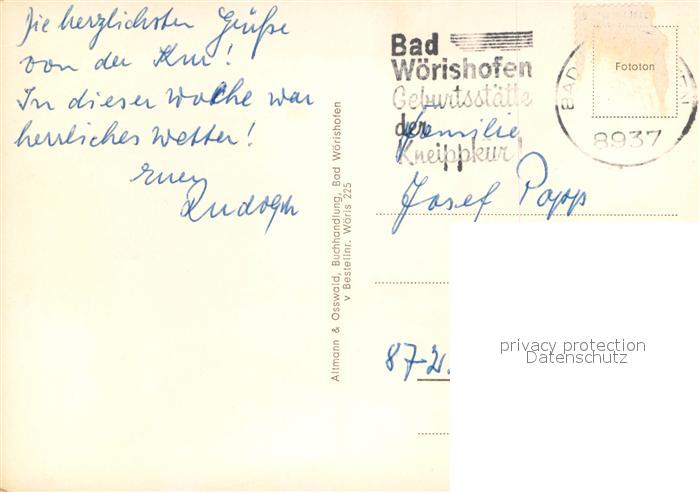 Die herzlichsten Grüße
von der Kur!
In dieser Woche war
herrliches Wetter!
Euer
Rudolph
Altmann & Osswald, Buchhandlung, Bad Wörishofen
v Bestellnr. Wöris 225
Bad
Wörishofen
Geburtsstätte
der
Kneippkur!
BAD
8937
Fototon
Familie
Josef Popp
87-21.
privacy protection
Datenschutz